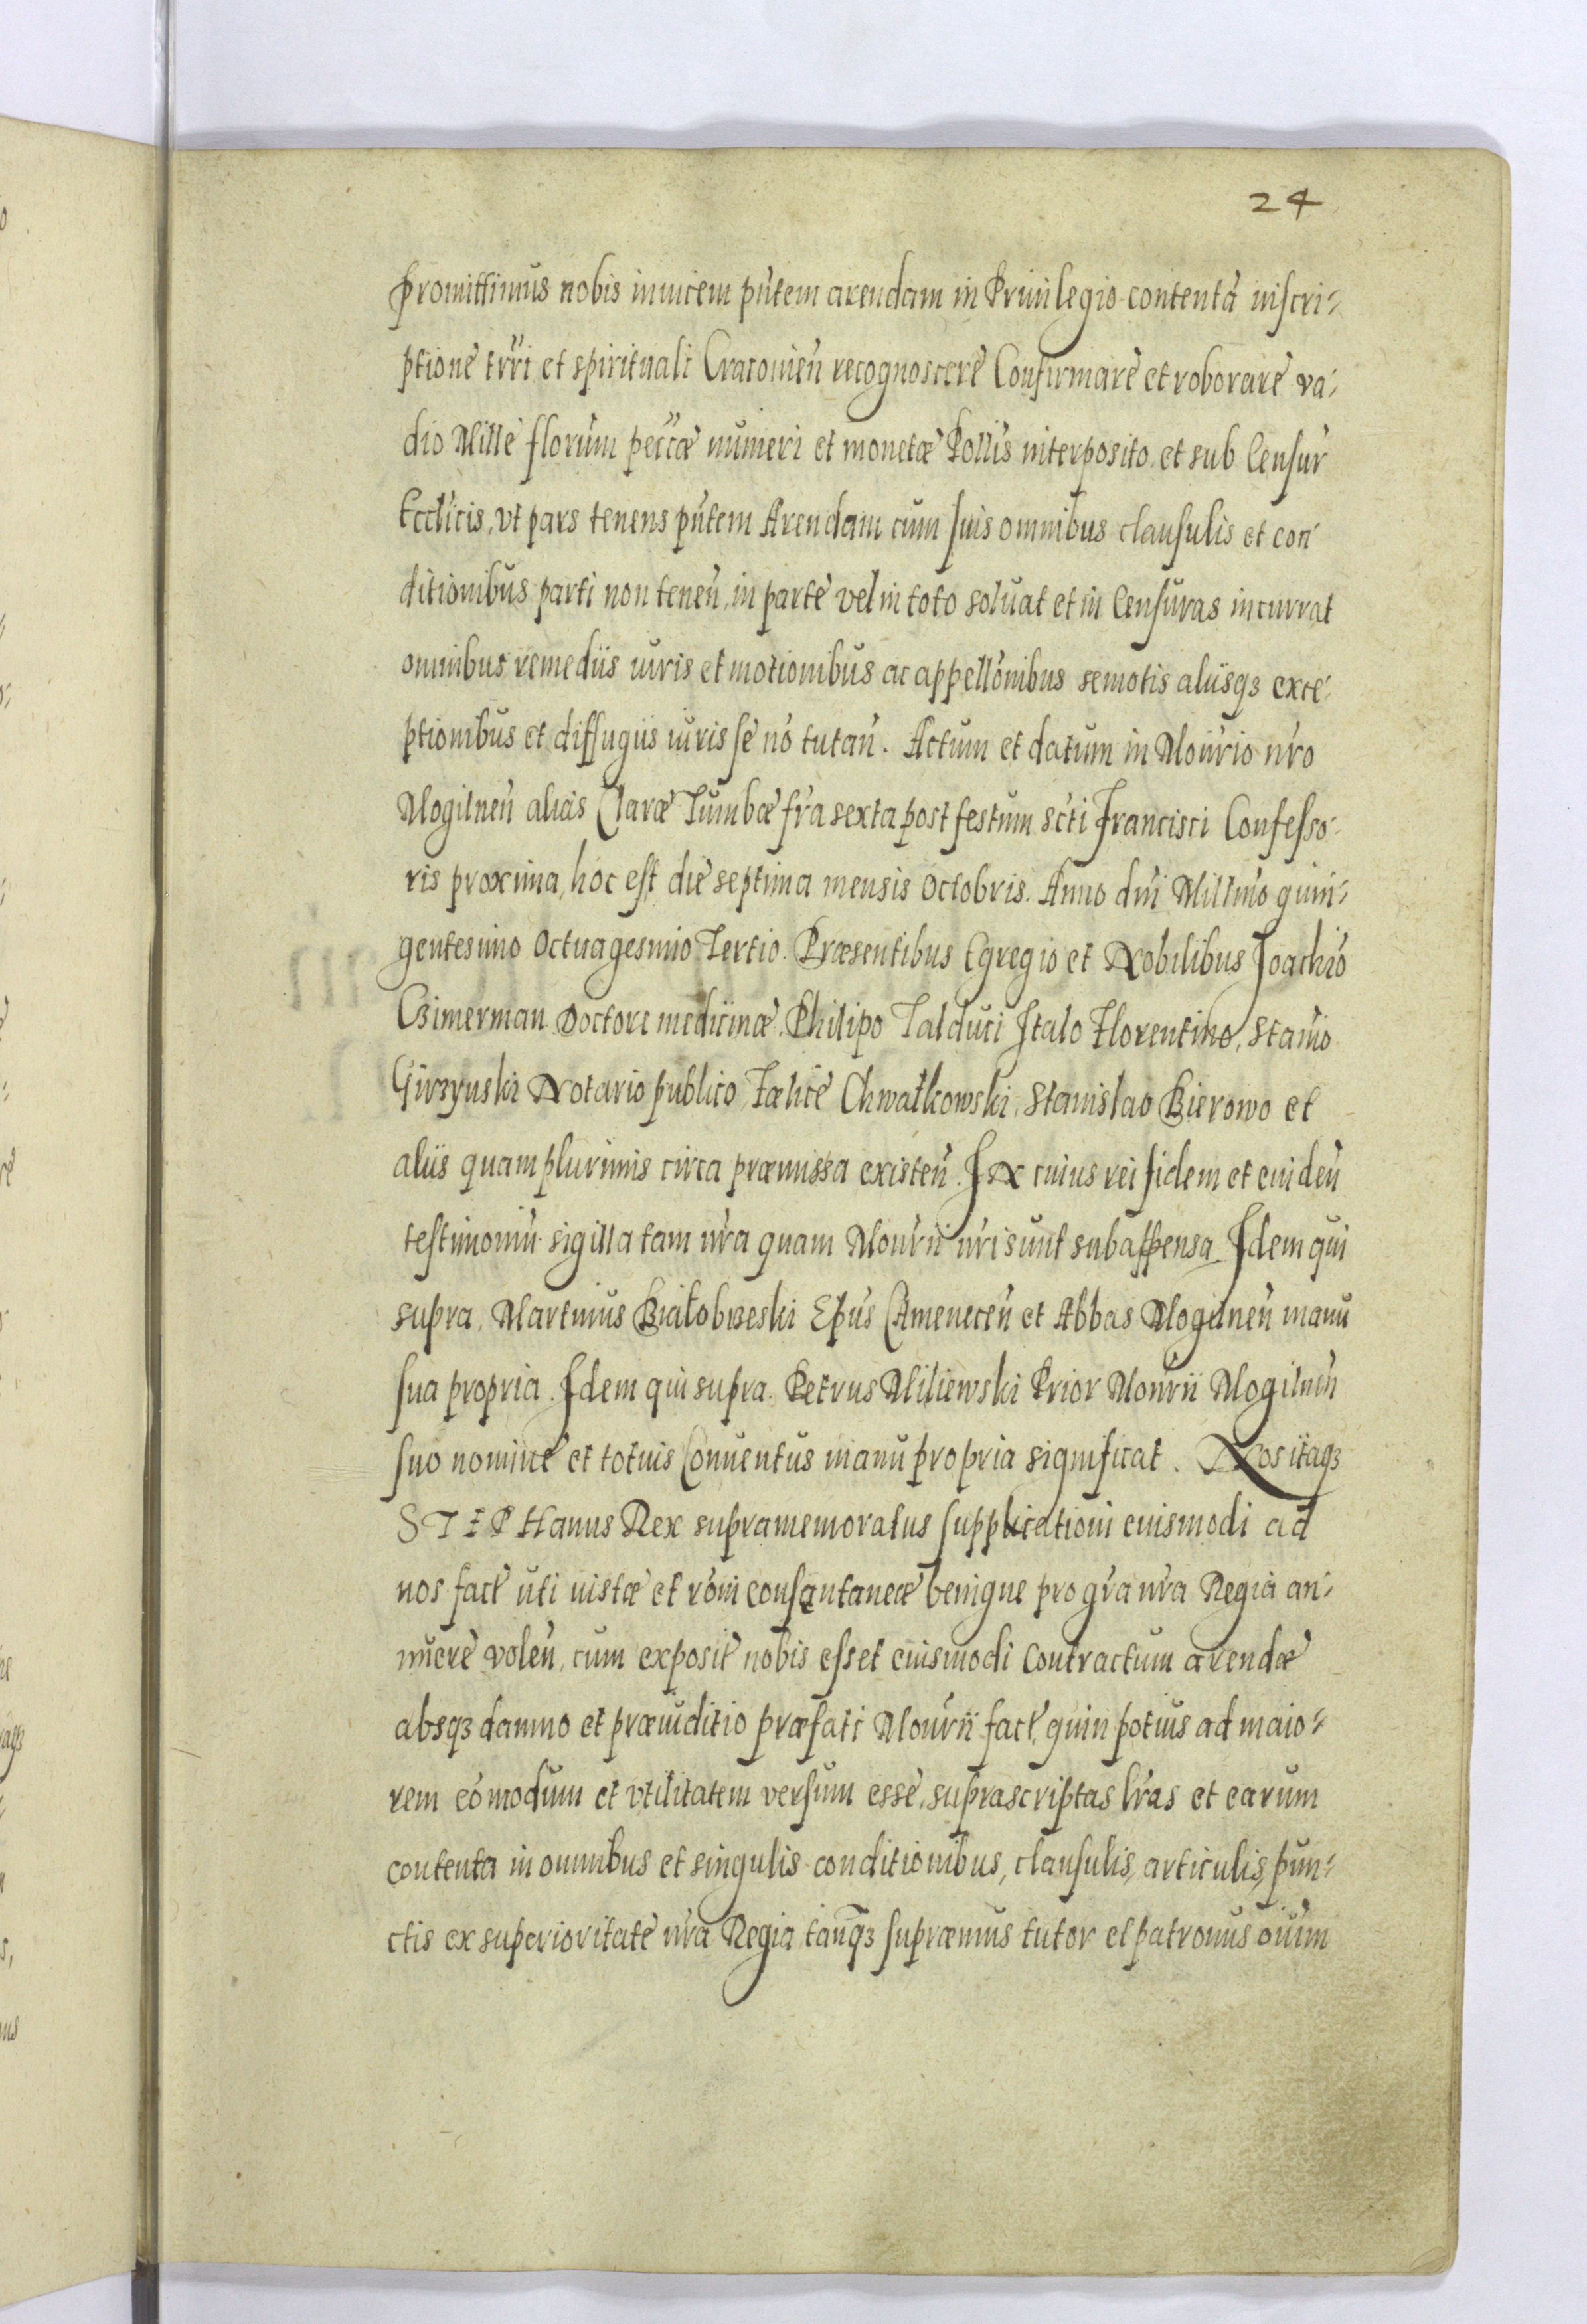 24
promittimus nobis inuicem pñtem arendam in Priuilegio contentã inscri-
ptione trri et spirituali Cracouień recognoscere Confirmare et roborare va-
dio Mille florum peccæ numeri et monetæ Pollis interposito et sub Censur
Ecclicis, vt pars tenens pñtem Arendam cum suis omnibus clausulis et con
ditionibus parti non teneń, in parte vel in toto soluat et in Censuras incurrat
omnibus remediis iuris et motionibus ac appellonibus semotis aliisqз exce-
ptionibus et diffugiis iuris se nõ tutań. Actum et datum in Monrio nro
Mogilneń alias Claræ Tumbæ fra sexta post festum scti Francisci Confesso-
ris proxima, hoc est die septima mensis Octobris. Anno dni Millmo quin-
gentesimo Octuagesimo Tertio. Præsentibus Egregio et Nobilibus Joachio
Czimerman Doctore medicinæ, Philipo Talduci Italo Florentino, Stanio
Girzynski Notario publico, Fœlice Chwałkowski, Stanislao Bierowo et
aliis quam plurimis circa præmissa existeń. IN cuius rei fidem et euideń
testimoniũ sigilla tam nra quam Monrii nri sunt subappensa. Idem qui
supra, Martinus Białobrzeski Epus Cameneceń et Abbas Mogilneń manu
sua propria. Idem qui supra. Petrus Miliewski Prior Monrii Mogilneń
suo nomine et totius Conuentus manu propria significat. Nos itaqз
STEPHanus Rex supramemoratus supplicationi euismodi ad
nos fact uti iustæ et roni consantaneæ benigne pro gra nra Regia an-
nuere voleń, cum exposit nobis esset euismodi Contractum arendæ
absqз damno et præiuditio præfati Monrii fact, quin potius ad maio-
rem cõmodum et vtilitatem versum esse, suprascriptas lras et earum
contenta in omnibus et singulis conditionibus, clausulis, articulis, pun-
ctis ex superioritate nra Regia, tanqз supræmus tutor et patronus oium